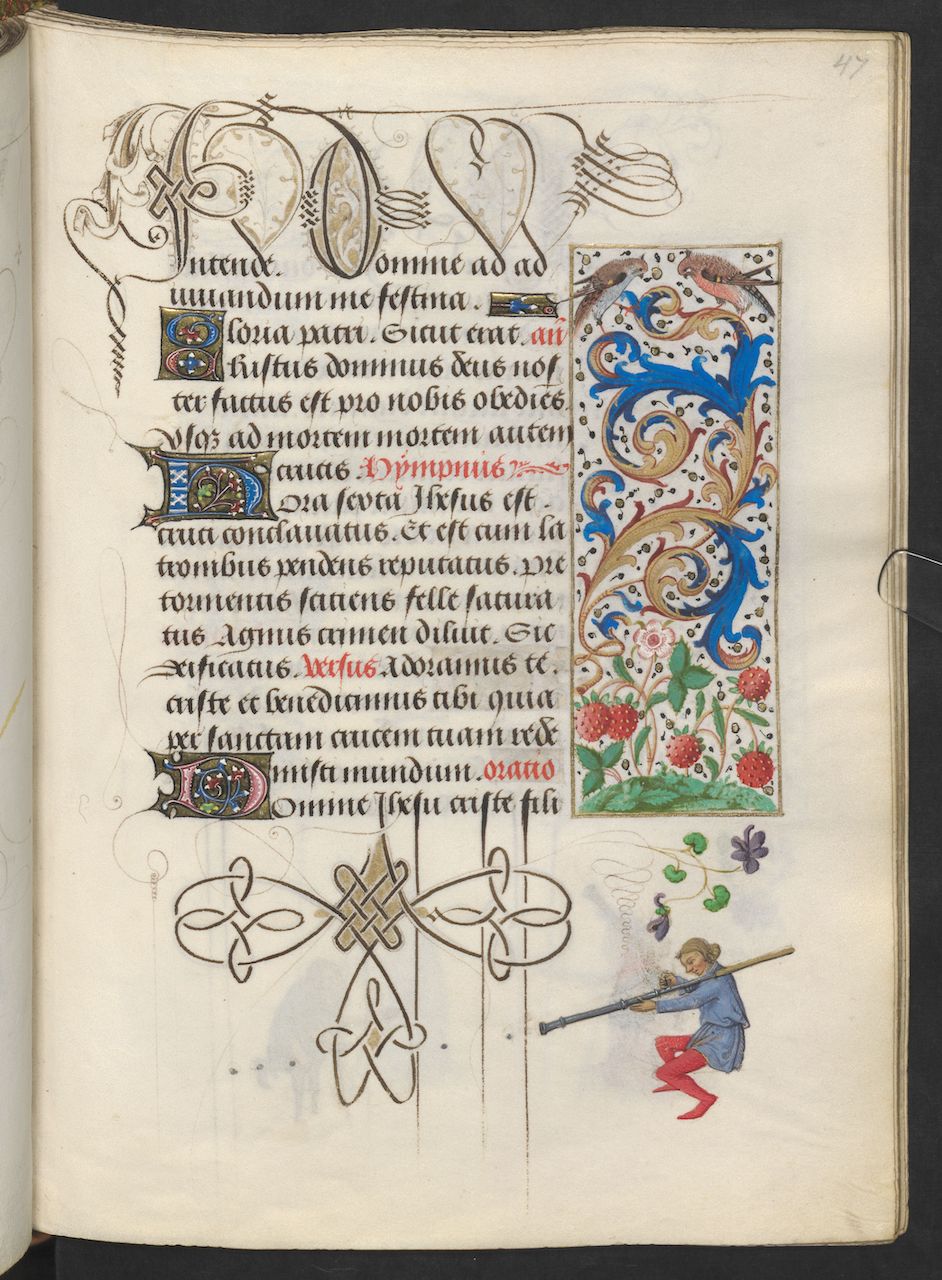 47
Intende. Domine ad ad
iuuandum me festina.
Gloria patri. Sicut erat. an̄
Christus dominus deus nos
ter factus est pro nobis obediēs
vsqꝫ ad mortem mortem autem
crucis. Hÿmpnus
Hora sexta Jhesus est
cruci conclauatus. Et est cum la
tronibus pendens reputatus. pre
tormentis sitiens felle satura
tus Agnus crimen diluit. Sic
deificatus. Versus Adoramus te.
criste et benedicimus tibi quia
per sanctam crucem tuam rede
misti mundum. oratio
Domine Jhesu criste fili